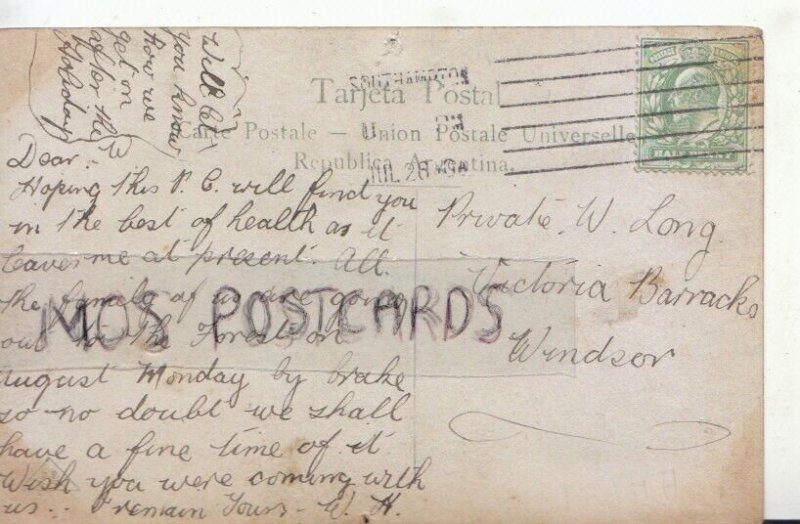 Will let
you know
how we
get on
after the
Holiday
SOUTHAMPTON
JUL 28
Tarjeta Postal
Carte Postale - Union Postale Universelle
Republica Argentina.
HALFPENNY
Dear.-
Hoping this P. C. will find you
in the best of health as it
leaves me at present. All
the family of us are going
out in the Forest on
August Monday by brake
so no doubt we shall
have a fine time of it
Wish you were coming with
us.. I remain Yours - W. H.
Private. W. Long
Victoria Barracks
Windsor
MOS POSTCARDS